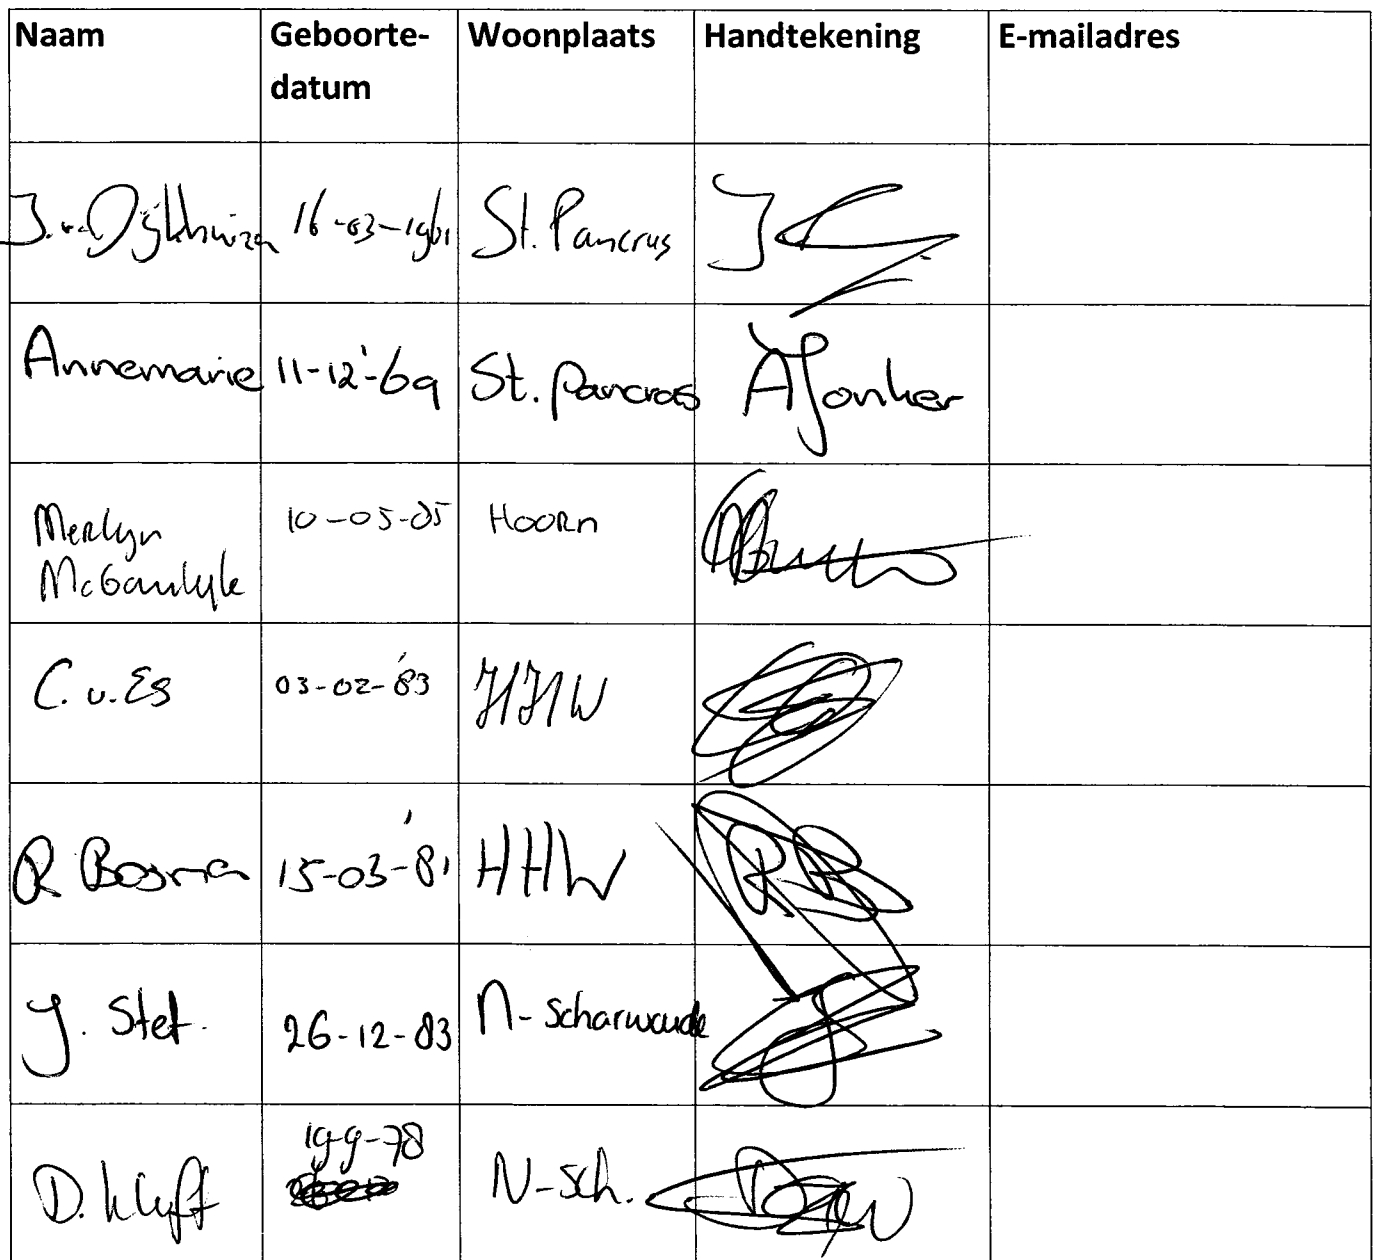 Naam Geboorte- Woonplaats Handtekening E-mailadres
datum
16-03-1961 St. Pancras
Annemarie 11-12-'69 St. pancras AJonker
Merlyn 10-05-85 Hoorn
C. v. Es 03-02-'83 HHW
R Bosma 15-03-'81 HHW
J. Stet. 26-12-83 N-scharwoude
19-9-78
D. Kluft N-sch.